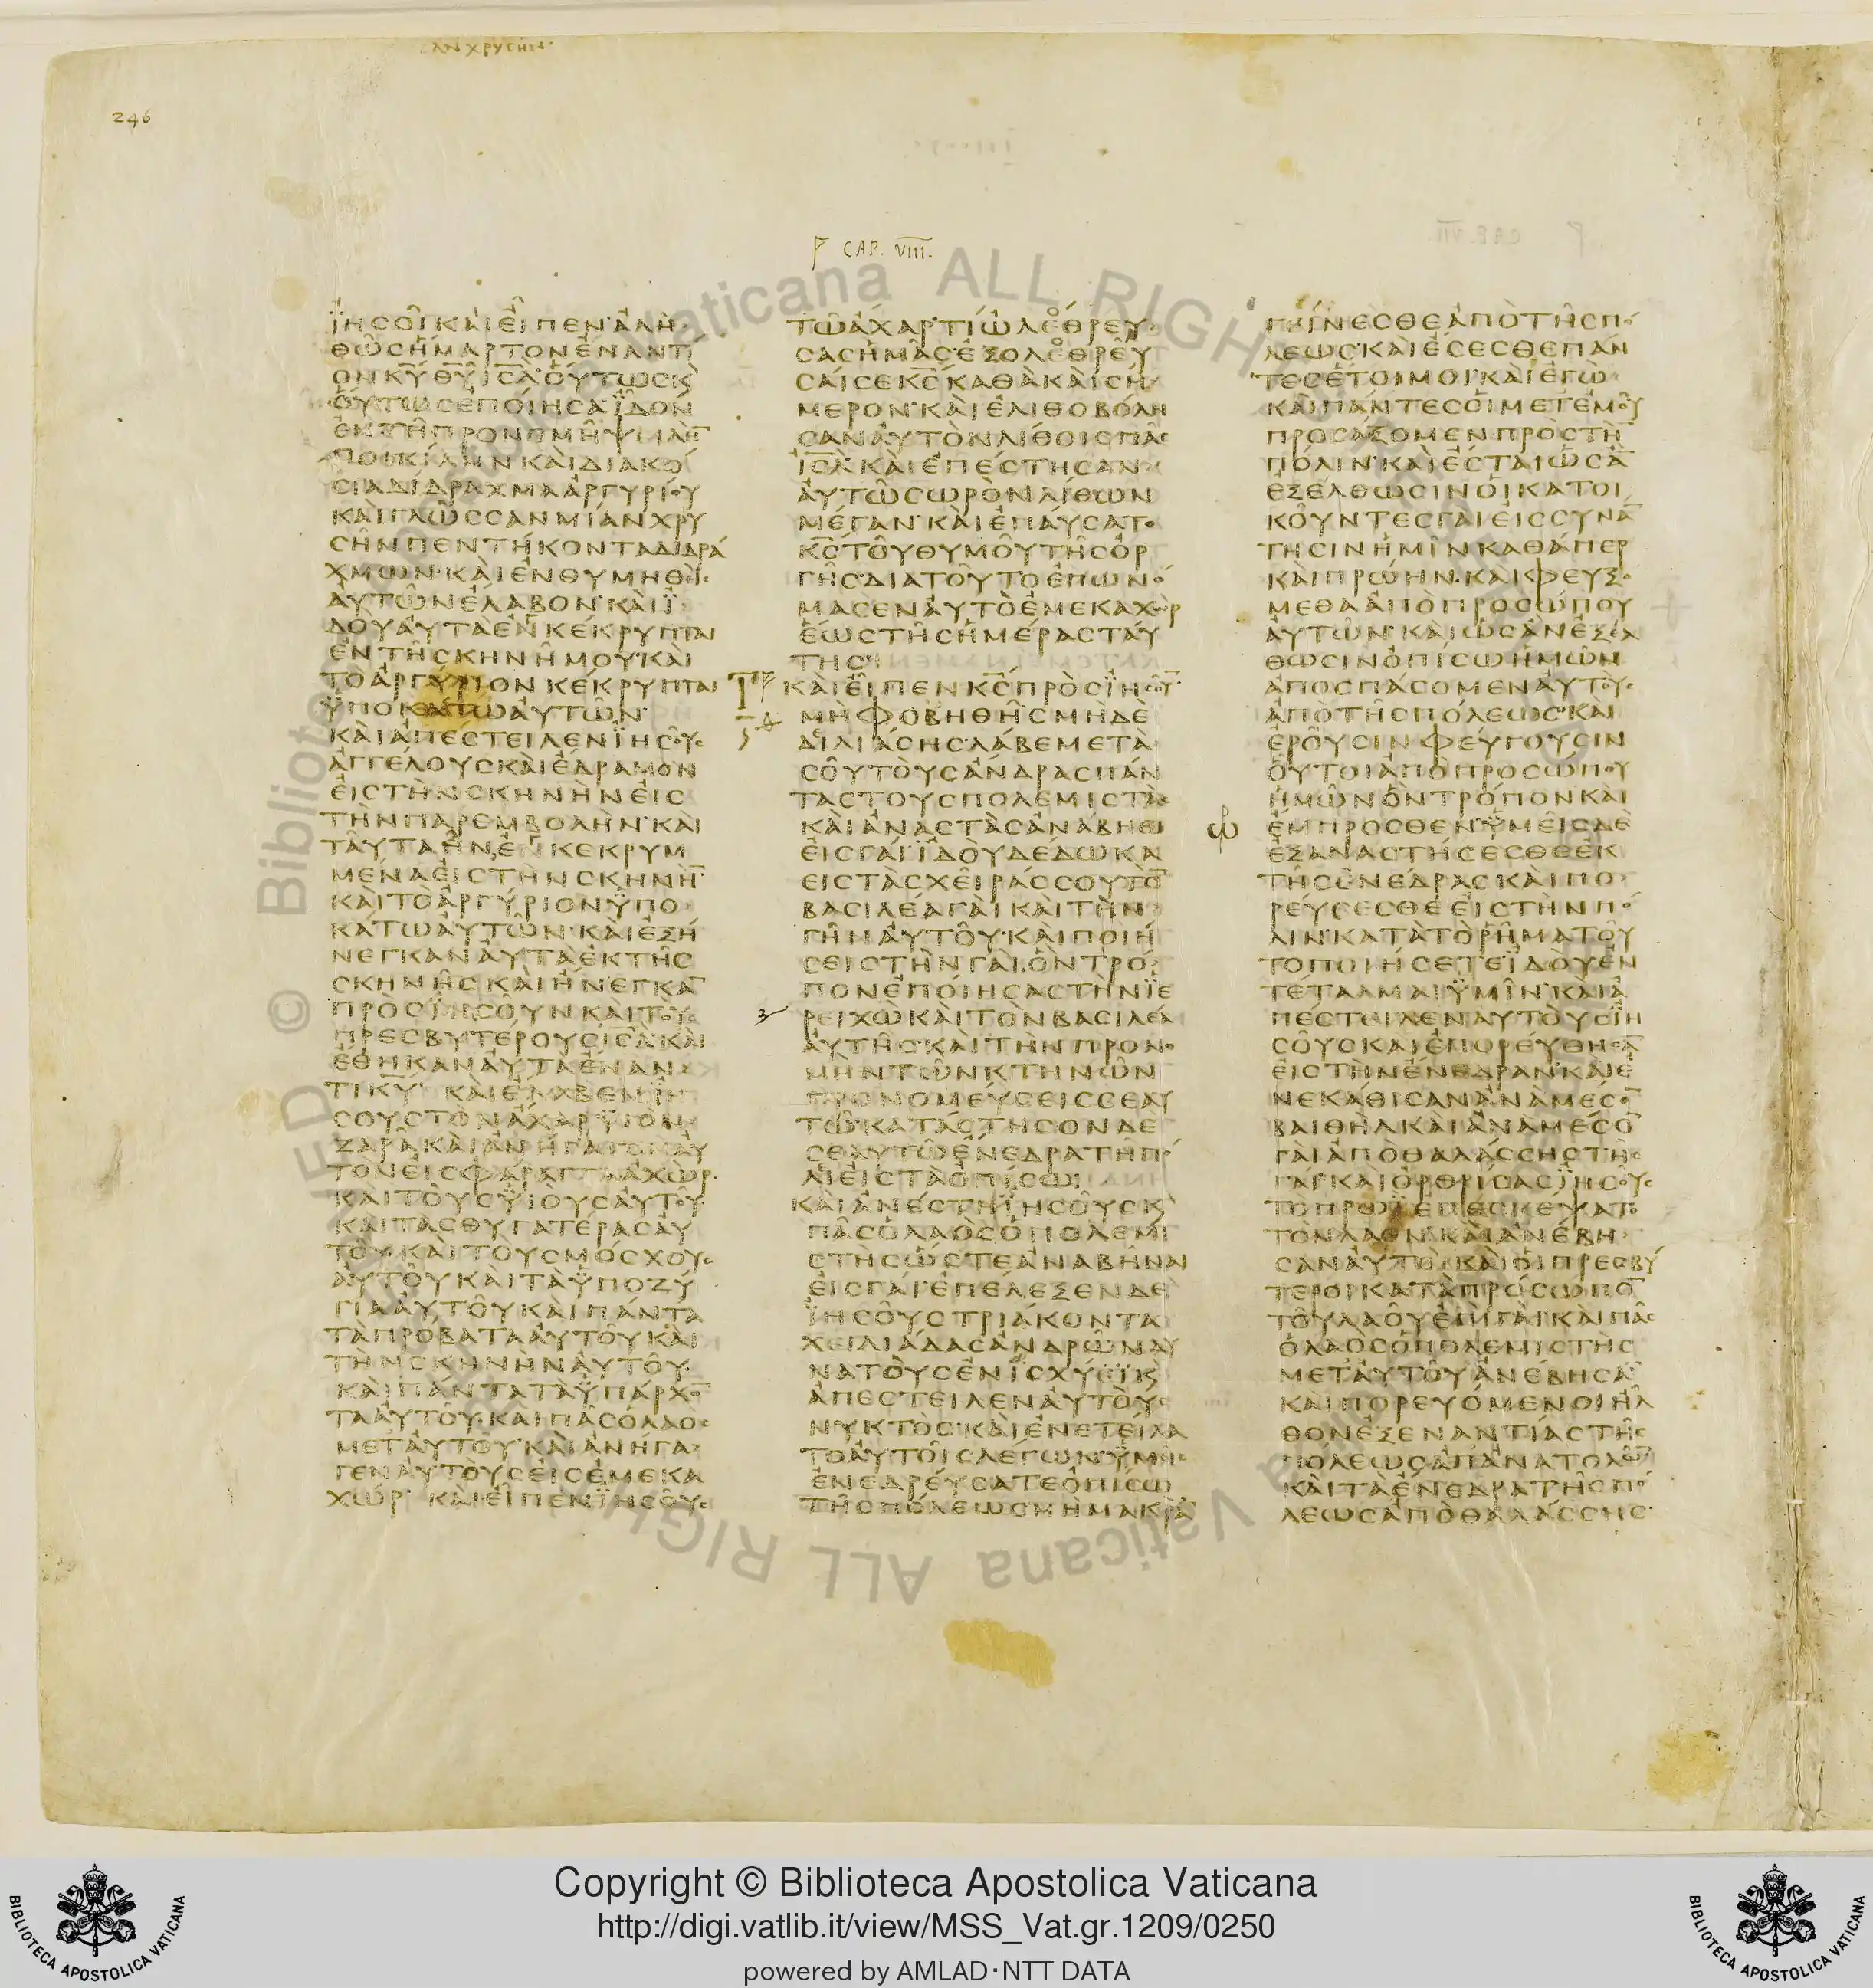 ϹΑΝΧΡΥϹΗΝ
246
CAP. VIII.
ΪΗϹΟΙΚΑΙΕΙΠΕΝΑΛΗ
ΘΩϹΗΜΑΡΤΟΝΕΝΑΝΤΙ
ΟΝΚΥΘΥΙϹΛΟΥΤΩϹΚ
ΟΥΤΩϹΕΠΟΙΗϹΑΪΔΟΝ
ΕΝΤΗΠΡΟΝΟΜΗΨΙΛΗ
ΠΟΙΚΙΛΗΝΚΑΙΔΙΑΚΟ
ϹΙΑΔΙΔΡΑΧΜΑΑΡΓΥΡΙΟΥ
ΚΑΙΓΛΩϹϹΑΝΜΙΑΝΧΡΥ
ϹΗΝΠΕΝΤΗΚΟΝΤΑΔΙΔΡΑ
ΧΜΩΝΚΑΙΕΝΘΥΜΗΘΙϹ
ΑΥΤΩΝΕΛΑΒΟΝΚΑΙΪ
ΔΟΥΑΥΤΑΕΝΓΚΕΚΡΥΠΤΑΙ
ΕΝΤΗϹΚΗΝΗΜΟΥΚΑΙ
ΤΟΑΡΓΥΡΙΟΝΚΕΚΡΥΠΤΑΙ
ΫΠΟΚΑΤΩΑΥΤΩΝ
ΚΑΙΑΠΕϹΤΕΙΛΕΝΪΗϹΟΥϹ
ΑΓΓΕΛΟΥϹΚΑΙΕΔΡΑΜΟΝ
ΕΙϹΤΗΝϹΚΗΝΗΝΕΙϹ
ΤΗΝΠΑΡΕΜΒΟΛΗΝΚΑΙ
ΤΑΥΤΑΗΝΕΝΚΕΚΡΥΜ
ΜΕΝΑΕΙϹΤΗΝϹΚΗΝΗ
ΚΑΙΤΟΑΡΓΥΡΙΟΝΫΠΟ
ΚΑΤΩΑΥΤΩΝΚΑΙΕΞΗ
ΝΕΓΚΑΝΑΥΤΑΕΚΤΗϹ
ϹΚΗΝΗϹΚΑΙΗΝΕΓΚΑ
ΠΡΟϹΪΗϹΟΥΝΚΑΙΤΟΥϹ
ΠΡΕϹΒΥΤΕΡΟΥϹΙϹΛΚΑΙ
ΕΘΗΚΑΝΑΥΤΑΕΝΑΝ
ΤΙΚΥ ΚΑΙΕΛΑΒΕΝΪΗ
ϹΟΥϹΤΟΝΑΧΑΡΫΙΟΝ
ΖΑΡΑΚΑΙΑΝΗΓΑΓΕΝΑΥ
ΤΟΝΕΙϹΦΑΡΑΓΓΑΑΧΩΡ
ΚΑΙΤΟΥϹΫΙΟΥϹΑΥΤΟΥ
ΚΑΙΤΑϹΘΥΓΑΤΕΡΑϹΑΥ
ΤΟΥΚΑΙΤΟΥϹΜΟϹΧΟΥϹ
ΑΥΤΟΥΚΑΙΤΑΫΠΟΖΥ
ΓΙΑΑΥΤΟΥΚΑΙΠΑΝΤΑ
ΤΑΠΡΟΒΑΤΑΑΥΤΟΥΚΑΙ
ΤΗΝϹΚΗΝΗΝΑΥΤΟΥ
ΚΑΙΠΑΝΤΑΤΑΫΠΑΡΧΟ
ΤΑΑΥΤΟΥΚΑΙΠΑϹΟΛΑΟϹ
ΜΕΤΑΥΤΟΥΚΑΙΑΝΗΓΑ
ΓΕΝΑΥΤΟΥϹΕΙϹΕΜΕΚΑ
ΧΩΡ ΚΑΙΕΙΠΕΝΪΗϹΟΥϹ
ΤΩΑΧΑΡΤΙΩΛΕΘΡΕΥ
ϹΑϹΗΜΑϹΕΞΟΛΕΘΡΕΥ
ϹΑΙϹΕΚϹΚΑΘΑΚΑΙϹΗ
ΜΕΡΟΝΚΑΙΕΛΙΘΟΒΟΛΗ
ϹΑΝΑΥΤΟΝΛΙΘΟΙϹΠΑϹ
ΙϹΛΚΑΙΕΠΕϹΤΗϹΑΝ
ΑΥΤΩϹΩΡΟΝΛΙΘΩΝ
ΜΕΓΑΝΚΑΙΕΠΑΥϹΑΤΟ
ΚϹΤΟΥΘΥΜΟΥΤΗϹΟΡ
ΓΗϹΔΙΑΤΟΥΤΟΕΠΩΝΟ
ΜΑϹΕΝΑΥΤΟΕΜΕΚΑΧΩΡ
ΕΩϹΤΗϹΗΜΕΡΑϹΤΑΥ
ΤΗϹ
ΚΑΙΕΙΠΕΝΚϹΠΡΟϹΪΗϹΟΥ
ΜΗΦΟΒΗΘΗϹΜΗΔΕ
ΔΙΛΙΑϹΗϹΛΑΒΕΜΕΤΑ
ϹΟΥΤΟΥϹΑΝΔΡΑϹΠΑΝ
ΤΑϹΤΟΥϹΠΟΛΕΜΙϹΤΑϹ
ΚΑΙΑΝΑϹΤΑϹΑΝΑΒΗΘΙ
ΕΙϹΓΑΙΪΔΟΥΔΕΔΩΚΑ
ΕΙϹΤΑϹΧΕΙΡΑϹϹΟΥΤΟ
ΒΑϹΙΛΕΑΓΑΙΚΑΙΤΗΝ
ΓΗΝΑΥΤΟΥΚΑΙΠΟΙΗ
ϹΕΙϹΤΗΝΓΑΙΟΝΤΡΟ
ΠΟΝΕΠΟΙΗϹΑϹΤΗΝΪΕ
ΡΕΙΧΩΚΑΙΤΟΝΒΑϹΙΛΕΑ
ΑΥΤΗϹΚΑΙΤΗΝΠΡΟΝΟ
ΜΗΝΤΩΝΚΤΗΝΩΝ
ΠΡΟΝΟΜΕΥϹΕΙϹϹΕΑΥ
ΤΩΚΑΤΑϹΤΗϹΟΝΔΕ
ϹΕΑΥΤΩΕΝΕΔΡΑΤΗΠΟ
ΛΙΕΙϹΤΑΟΠΙϹΩ
ΚΑΙΑΝΕϹΤΗΪΗϹΟΥϹΚ
ΠΑϹΟΛΑΟϹΟΠΟΛΕΜΙ
ϹΤΗϹΩϹΤΕΑΝΑΒΗΝΑΙ
ΕΙϹΓΑΙΕΠΕΛΕΞΕΝΔΕ
ΪΗϹΟΥϹΤΡΙΑΚΟΝΤΑ
ΧΕΙΛΙΑΔΑϹΑΝΔΡΩΝΔΥ
ΝΑΤΟΥϹΕΝΪϹΧΥΪΚ
ΑΠΕϹΤΕΙΛΕΝΑΥΤΟΥϹ
ΝΥΚΤΟϹΚΑΙΕΝΕΤΕΙΛΑ
ΤΟΑΥΤΟΙϹΛΕΓΩΝΫΜΕΙϹ
ΕΝΕΔΡΕΥϹΑΤΕΟΠΙϹΩ
ΤΗϹΠΟΛΕΩϹΜΗΜΑΚΡΑ
ΓΕΙΝΕϹΘΕΑΠΟΤΗϹΠΟ
ΛΕΩϹΚΑΙΕϹΕϹΘΕΠΑΝ
ΤΕϹΕΤΟΙΜΟΙΚΑΙΕΓΩ
ΚΑΙΠΑΝΤΕϹΟΙΜΕΤΕΜΟΥ
ΠΡΟϹΑΞΟΜΕΝΠΡΟϹΤΗ
ΠΟΛΙΝΚΑΙΕϹΤΑΙΩϹΑ
ΕΞΕΛΘΩϹΙΝΟΙΚΑΤΟΙ
ΚΟΥΝΤΕϹΓΑΙΕΙϹϹΥΝΑ
ΤΗϹΙΝΗΜΙΝΚΑΘΑΠΕΡ
ΚΑΙΠΡΩΗΝΚΑΙΦΕΥΞΟ
ΜΕΘΑΑΠΟΠΡΟϹΩΠΟΥ
ΑΥΤΩΝΚΑΙΩϹΑΝΕΞΕΛ
ΘΩϹΙΝΟΠΙϹΩΗΜΩΝ
ΑΠΟϹΠΑϹΟΜΕΝΑΥΤΟΥϹ
ΑΠΟΤΗϹΠΟΛΕΩϹΚΑΙ
ΕΡΟΥϹΙΝΦΕΥΓΟΥϹΙΝ
ΟΥΤΟΙΑΠΟΠΡΟϹΩΠΟΥ
ΗΜΩΝΟΝΤΡΟΠΟΝΚΑΙ
ΕΜΠΡΟϹΘΕΝΫΜΕΙϹΔΕ
ΕΞΑΝΑϹΤΗϹΕϹΘΕΕΚ
ΤΗϹΕΝΕΔΡΑϹΚΑΙΠΟ
ΡΕΥϹΕϹΘΕΕΙϹΤΗΝΠΟ
ΛΙΝΚΑΤΑΤΟΡΗΜΑΤΟΥ
ΤΟΠΟΙΗϹΕΤΕΪΔΟΥΕΝ
ΤΕΤΑΛΜΑΙΫΜΙΝΚΑΙΑ
ΠΕϹΤΕΙΛΕΝΑΥΤΟΥϹΪΗ
ϹΟΥϹΚΑΙΕΠΟΡΕΥΘΗϹΑ
ΕΙϹΤΗΝΕΝΕΔΡΑΝΚΑΙΕ
ΝΕΚΑΘΙϹΑΝΑΝΑΜΕϹΟ
ΒΑΙΘΗΛΚΑΙΑΝΑΜΕϹΟ
ΓΑΙΑΠΟΘΑΛΑϹϹΗϹΤΗϹ
ΓΑΙΚΑΙΟΡΘΡΙϹΑϹΪΗϹΟΥϹ
ΤΟΠΡΩΪΕΠΕϹΚΕΨΑΤΟ
ΤΟΝΛΑΟΝΚΑΙΑΝΕΒΗ
ϹΑΝΑΥΤΟΙΚΑΙΟΙΠΡΕϹΒΥ
ΤΕΡΟΙΚΑΤΑΠΡΟϹΩΠΟ
ΤΟΥΛΑΟΥΕΠΙΓΑΙΚΑΙΠΑϹ
ΟΛΑΟϹΟΠΟΛΕΜΙϹΤΗϹ
ΜΕΤΑΥΤΟΥΑΝΕΒΗϹΑ
ΚΑΙΠΟΡΕΥΟΜΕΝΟΙΗΛ
ΘΟΝΕΞΕΝΑΝΤΙΑϹΤΗϹ
ΠΟΛΕΩϹΑΠΑΝΑΤΟΛΩ
ΚΑΙΤΑΕΝΕΔΡΑΤΗϹΠΟ
ΛΕΩϹΑΠΟΘΑΛΑϹϹΗϹ
Copyright © Biblioteca Apostolica Vaticana
http://digi.vatlib.it/view/MSS_Vat.gr.1209/0250
powered by AMLAD·NTT DATA
BIBLIOTECA APOSTOLICA VATICANA
BIBLIOTECA APOSTOLICA VATICANA